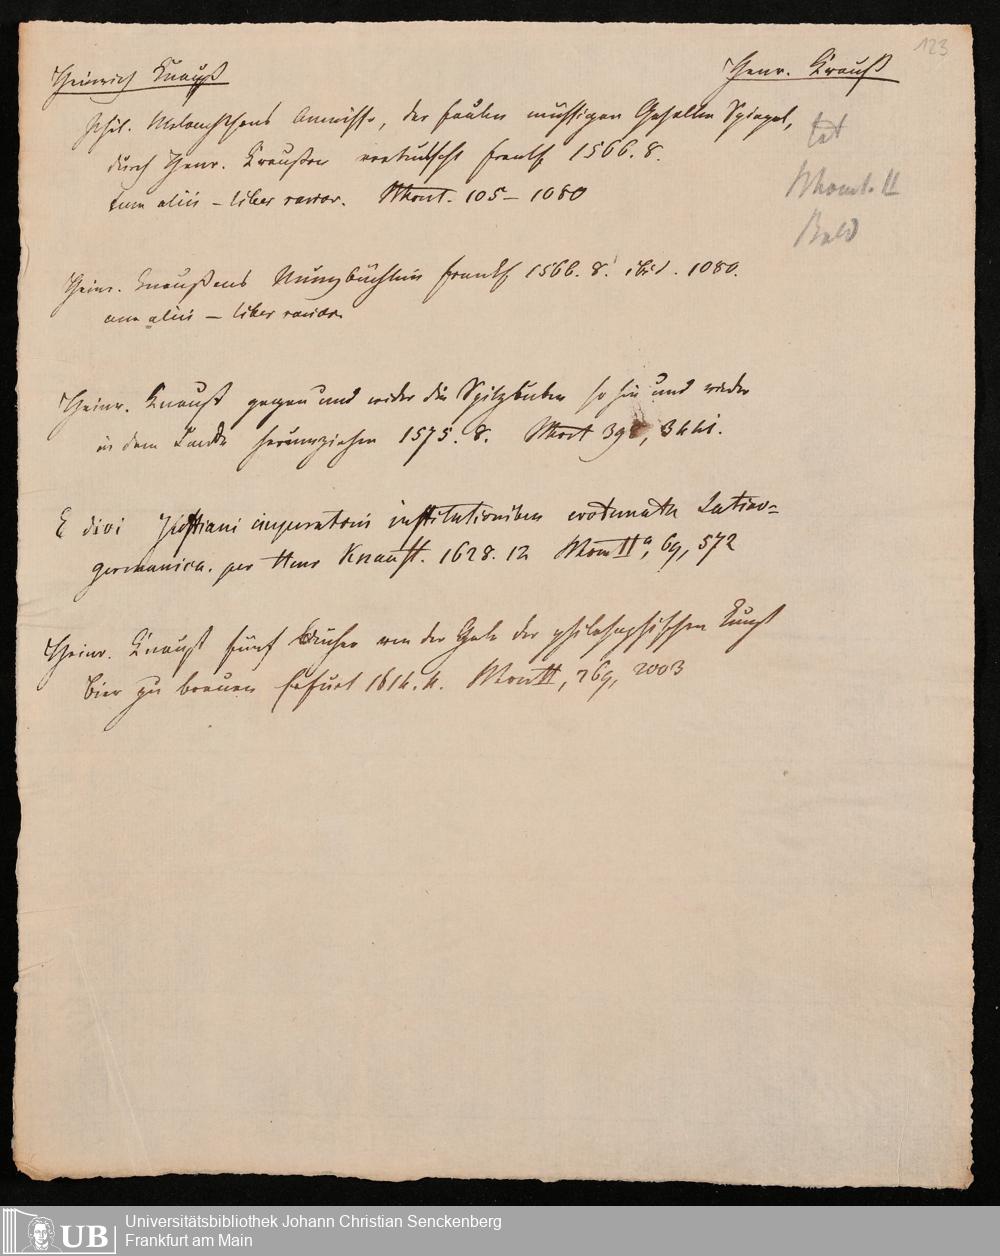 123
Heinrich Knaust
Henr. Krauß
Phil. Melanchthons Ameisse, der faulen müssigen Gesellen Spiegel,
durch Henr. Kraußen verteutscht Frankf 1566. 8.
cum aliis – liber rarior. Mont. 105 – 1080
Mont. II
Heinr. Knaußens Münzbüchlein Frankf 1566. 8. ibid. 1080.
cum aliis – liber rarior
Heinr. Knaust gegen und wider die Spitzbuben so hin und wieder
in dem Lande herumziehen 1575. 8. Mont 398, 3441.
E divi Justiniani imperatoris institutionibus erotemata Latino-
germanica. per Henr Knaust. 1628. 12 Mon II a, 69, 572
Heinr. Knaust fünf Bücher von der Gabe der philosophischen Kunst
Bier zu brauen Erfurt 1614. 4. Mon II, 269, 2003
UB
Universitätsbibliothek Johann Christian Senckenberg
Frankfurt am Main